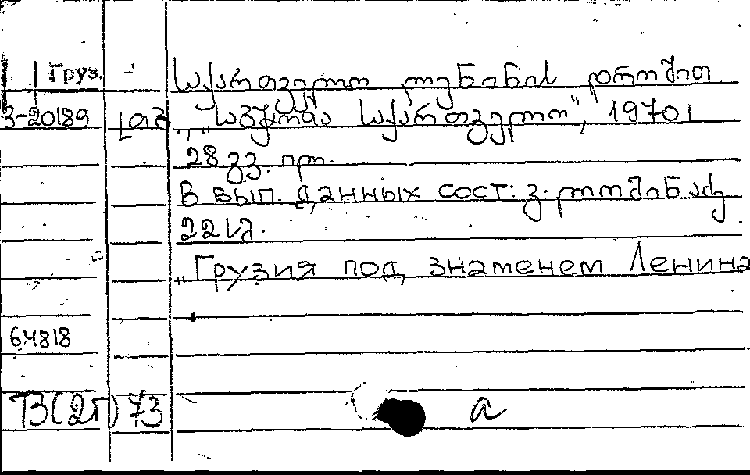 Груз.
საქართველო ლენინის დროშით
3-20189 „საბჭოთა საქართველო“, 1970.
28 გვ. ილ.
В вып. данных сост.:
22 კ.
„Грузия под знаменем Ленина
64818
ТЗ(2Г)73 а